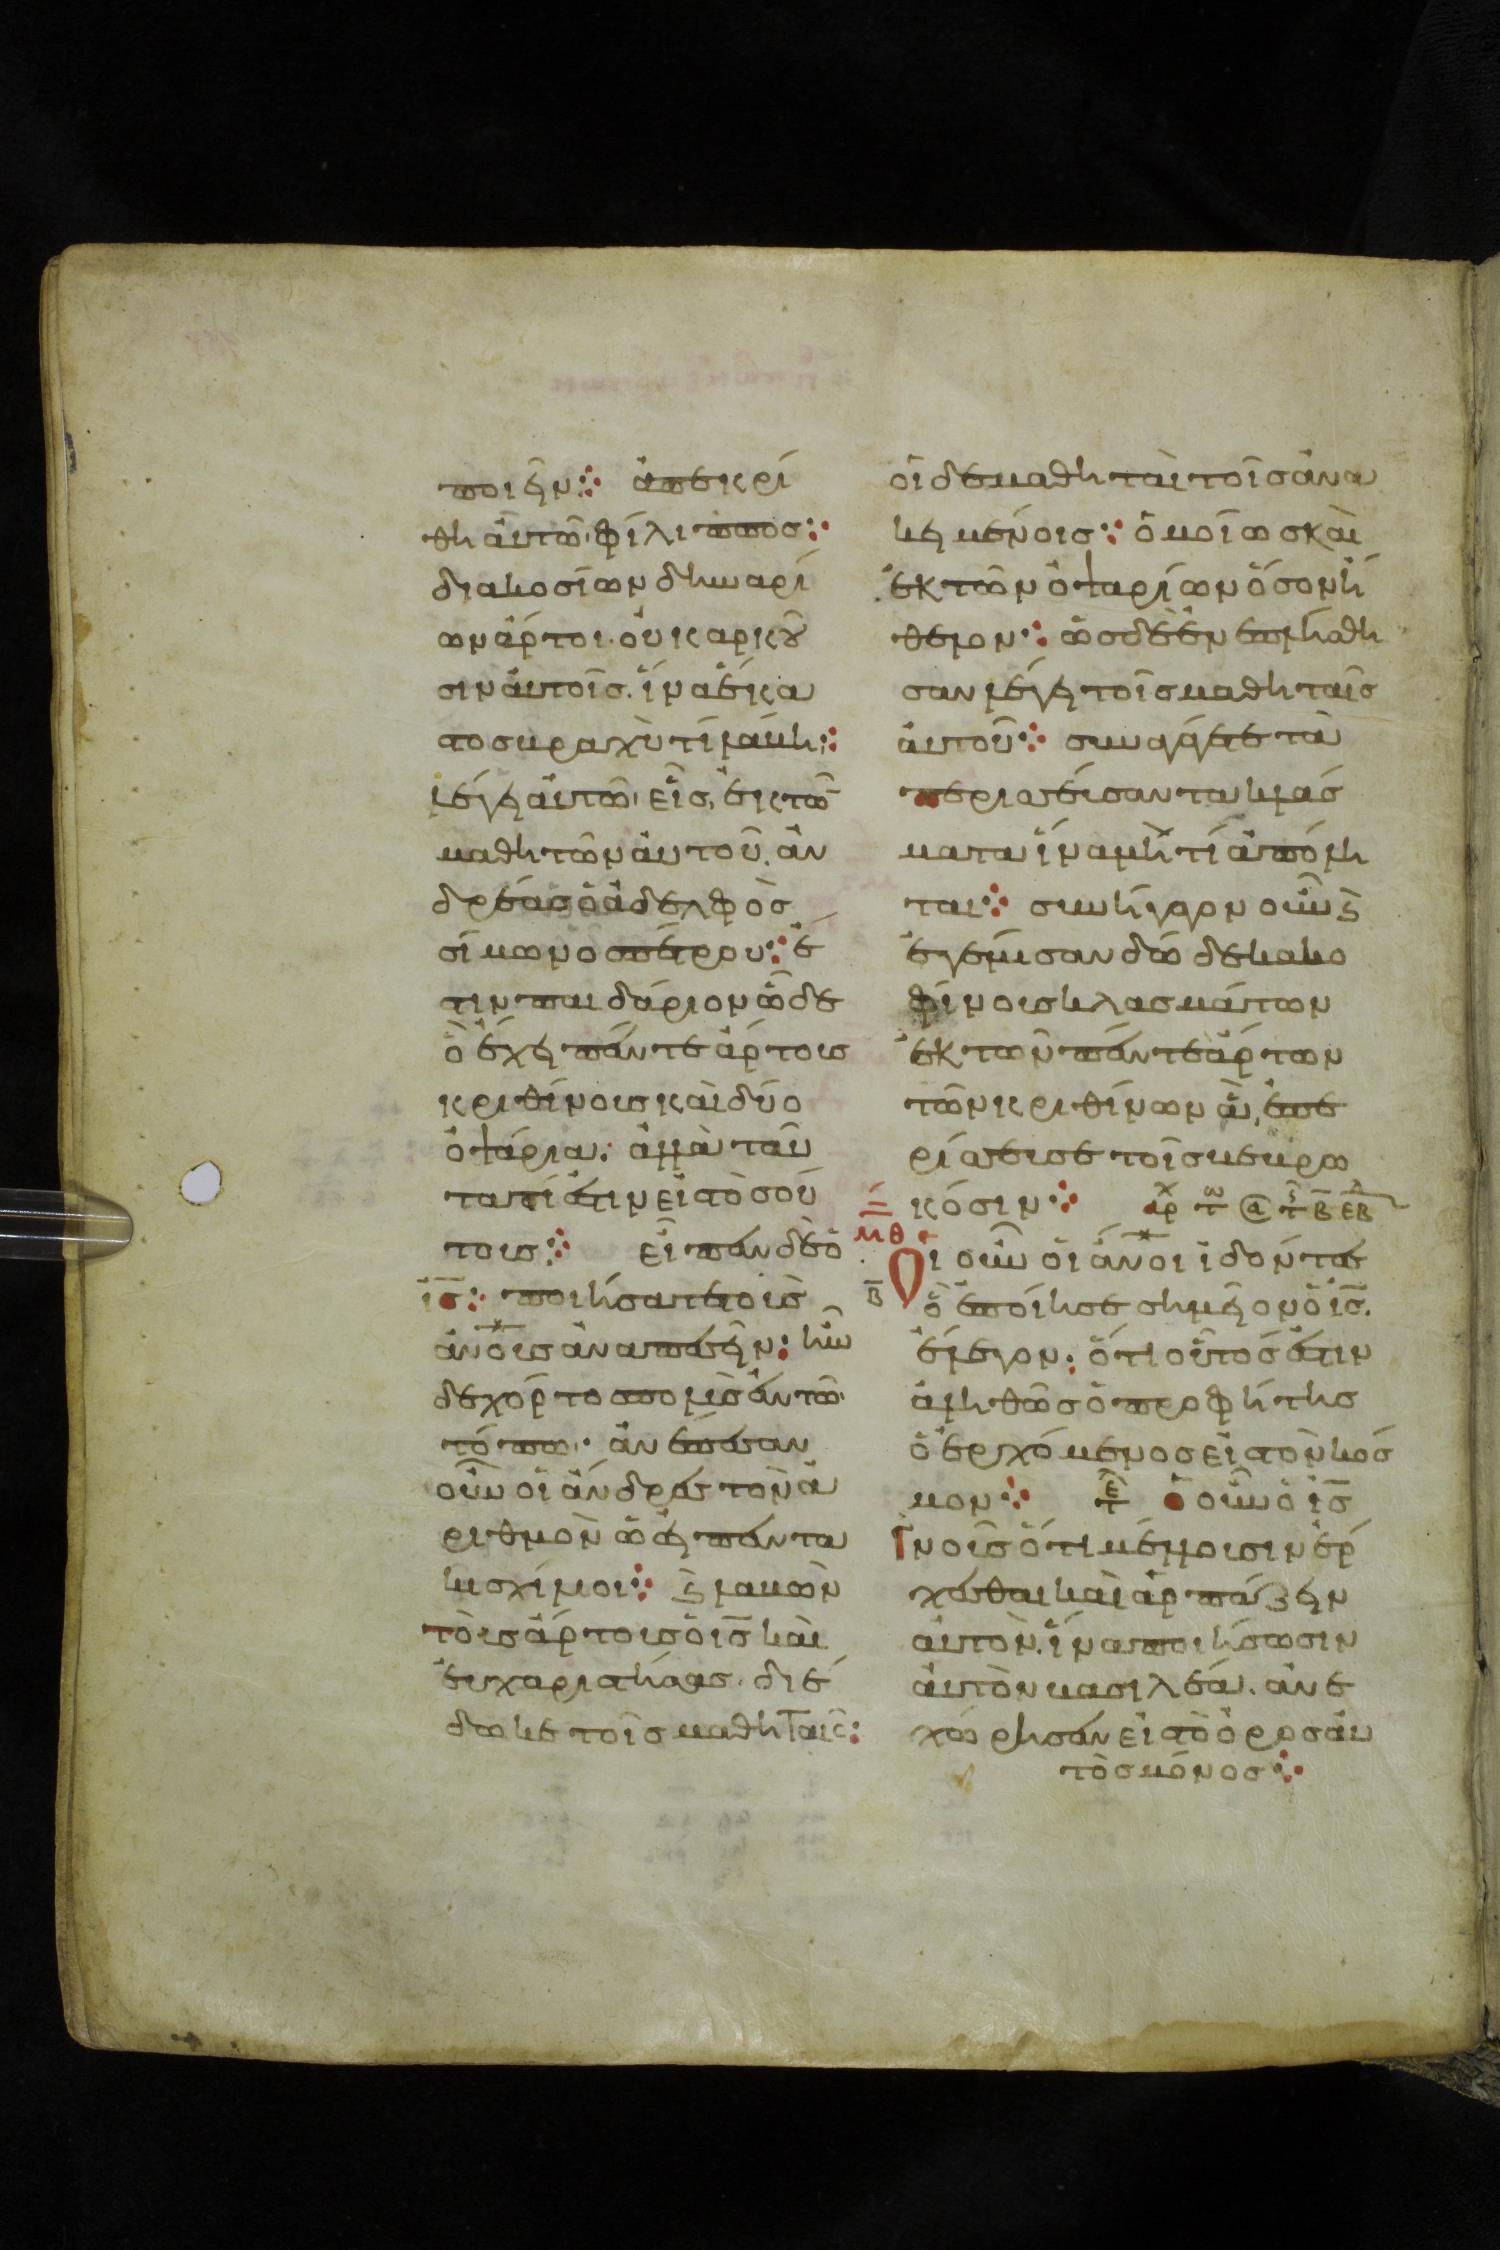 ποιεῖν ἀπεκρί
θη ἀυτῶ φίλιππος
διακοσίων δηναρί
ων ἄρτοι οὐκ ἀρκοῦ
σιν ἀυτοῖς. ἵνα ἕκα
στος βραχὺ τί λάβη
λέγει ἀυτῶ εἷς, ἐκ τῶ
μαθητῶν ἀυτοῦ. ἀν
δρέας ὁ ἀδελφὸς
σίμωνος πέτρου ἔ
στιν παιδάριον ὧδε
ὃ ἔχει πέντε ἄρτους
κριθίνους καὶ δύο
ὀψάρια. ἀλλὰ ταῦ
τα τί ἐστιν εἰς τοσού
τους εἶπεν δὲ ὁ
ἰς ποιήσατε τοὺς
ἀνους ἀναπεσεῖν ἦν
δὲ χόρτος πολὺς ἐν τῶ
τόπω ἀνέπεσαν
οὖν οἱ ἄνδρες τὸν ἀ
ριθμὸν ὡσεὶ πεντα
κισχίλιοι ἔλαβεν
τοὺς ἄρτους ὁ ις καὶ
ἐυχαριστήσας. διέ
δωκε τοῖς μαθηταῖς
οἱ δε μαθηταὶ τοῖς ἀνα
κειμένοις ὁμοίως καὶ
ἐκ τῶν ὀψαρίων ὅσον ἤ
θελον ὡς δὲ ἐνεπλήσθη
σαν λέγει τοῖς μαθηταῖς
ἀυτοῦ συναγάγετε τὰ
περισσεύσαντα κλάσ
ματα ἵνα μή τί ἀπόλη
ται συνήγαγον οὖν καὶ
ἐγέμισαν δώδεκα κο
φίνους κλασμάτων
ἐκ τῶν πέντε ἄρτων
τῶν κριθίνων ἃ ἐπε
ρίσσευσε τοῖς βεβρω
κόσιν
μθ Οι οὖν οἱ ἀνοι ἰδόντες
ὃ ἐποίησε σημεῖον ὁ ις.
ἔλεγον. ὅτι οὗτός ἐστιν
ἀληθῶς ὁ προφήτης
ὁ ἐρχόμενος εἰς τὸν κόσ
μον ὁ οὖν ὁ ις
γνοὺς ὅτι μέλλουσιν ἔρ
χεσθαι καὶ ἁρπάζειν
αὐτὸν. ἵνα ποιήσωσιν
ἀυτὸν βασιλέα. ἀνε
χώρησεν εἰς τὸ ὄρος ἀυ
τὸς μόνος